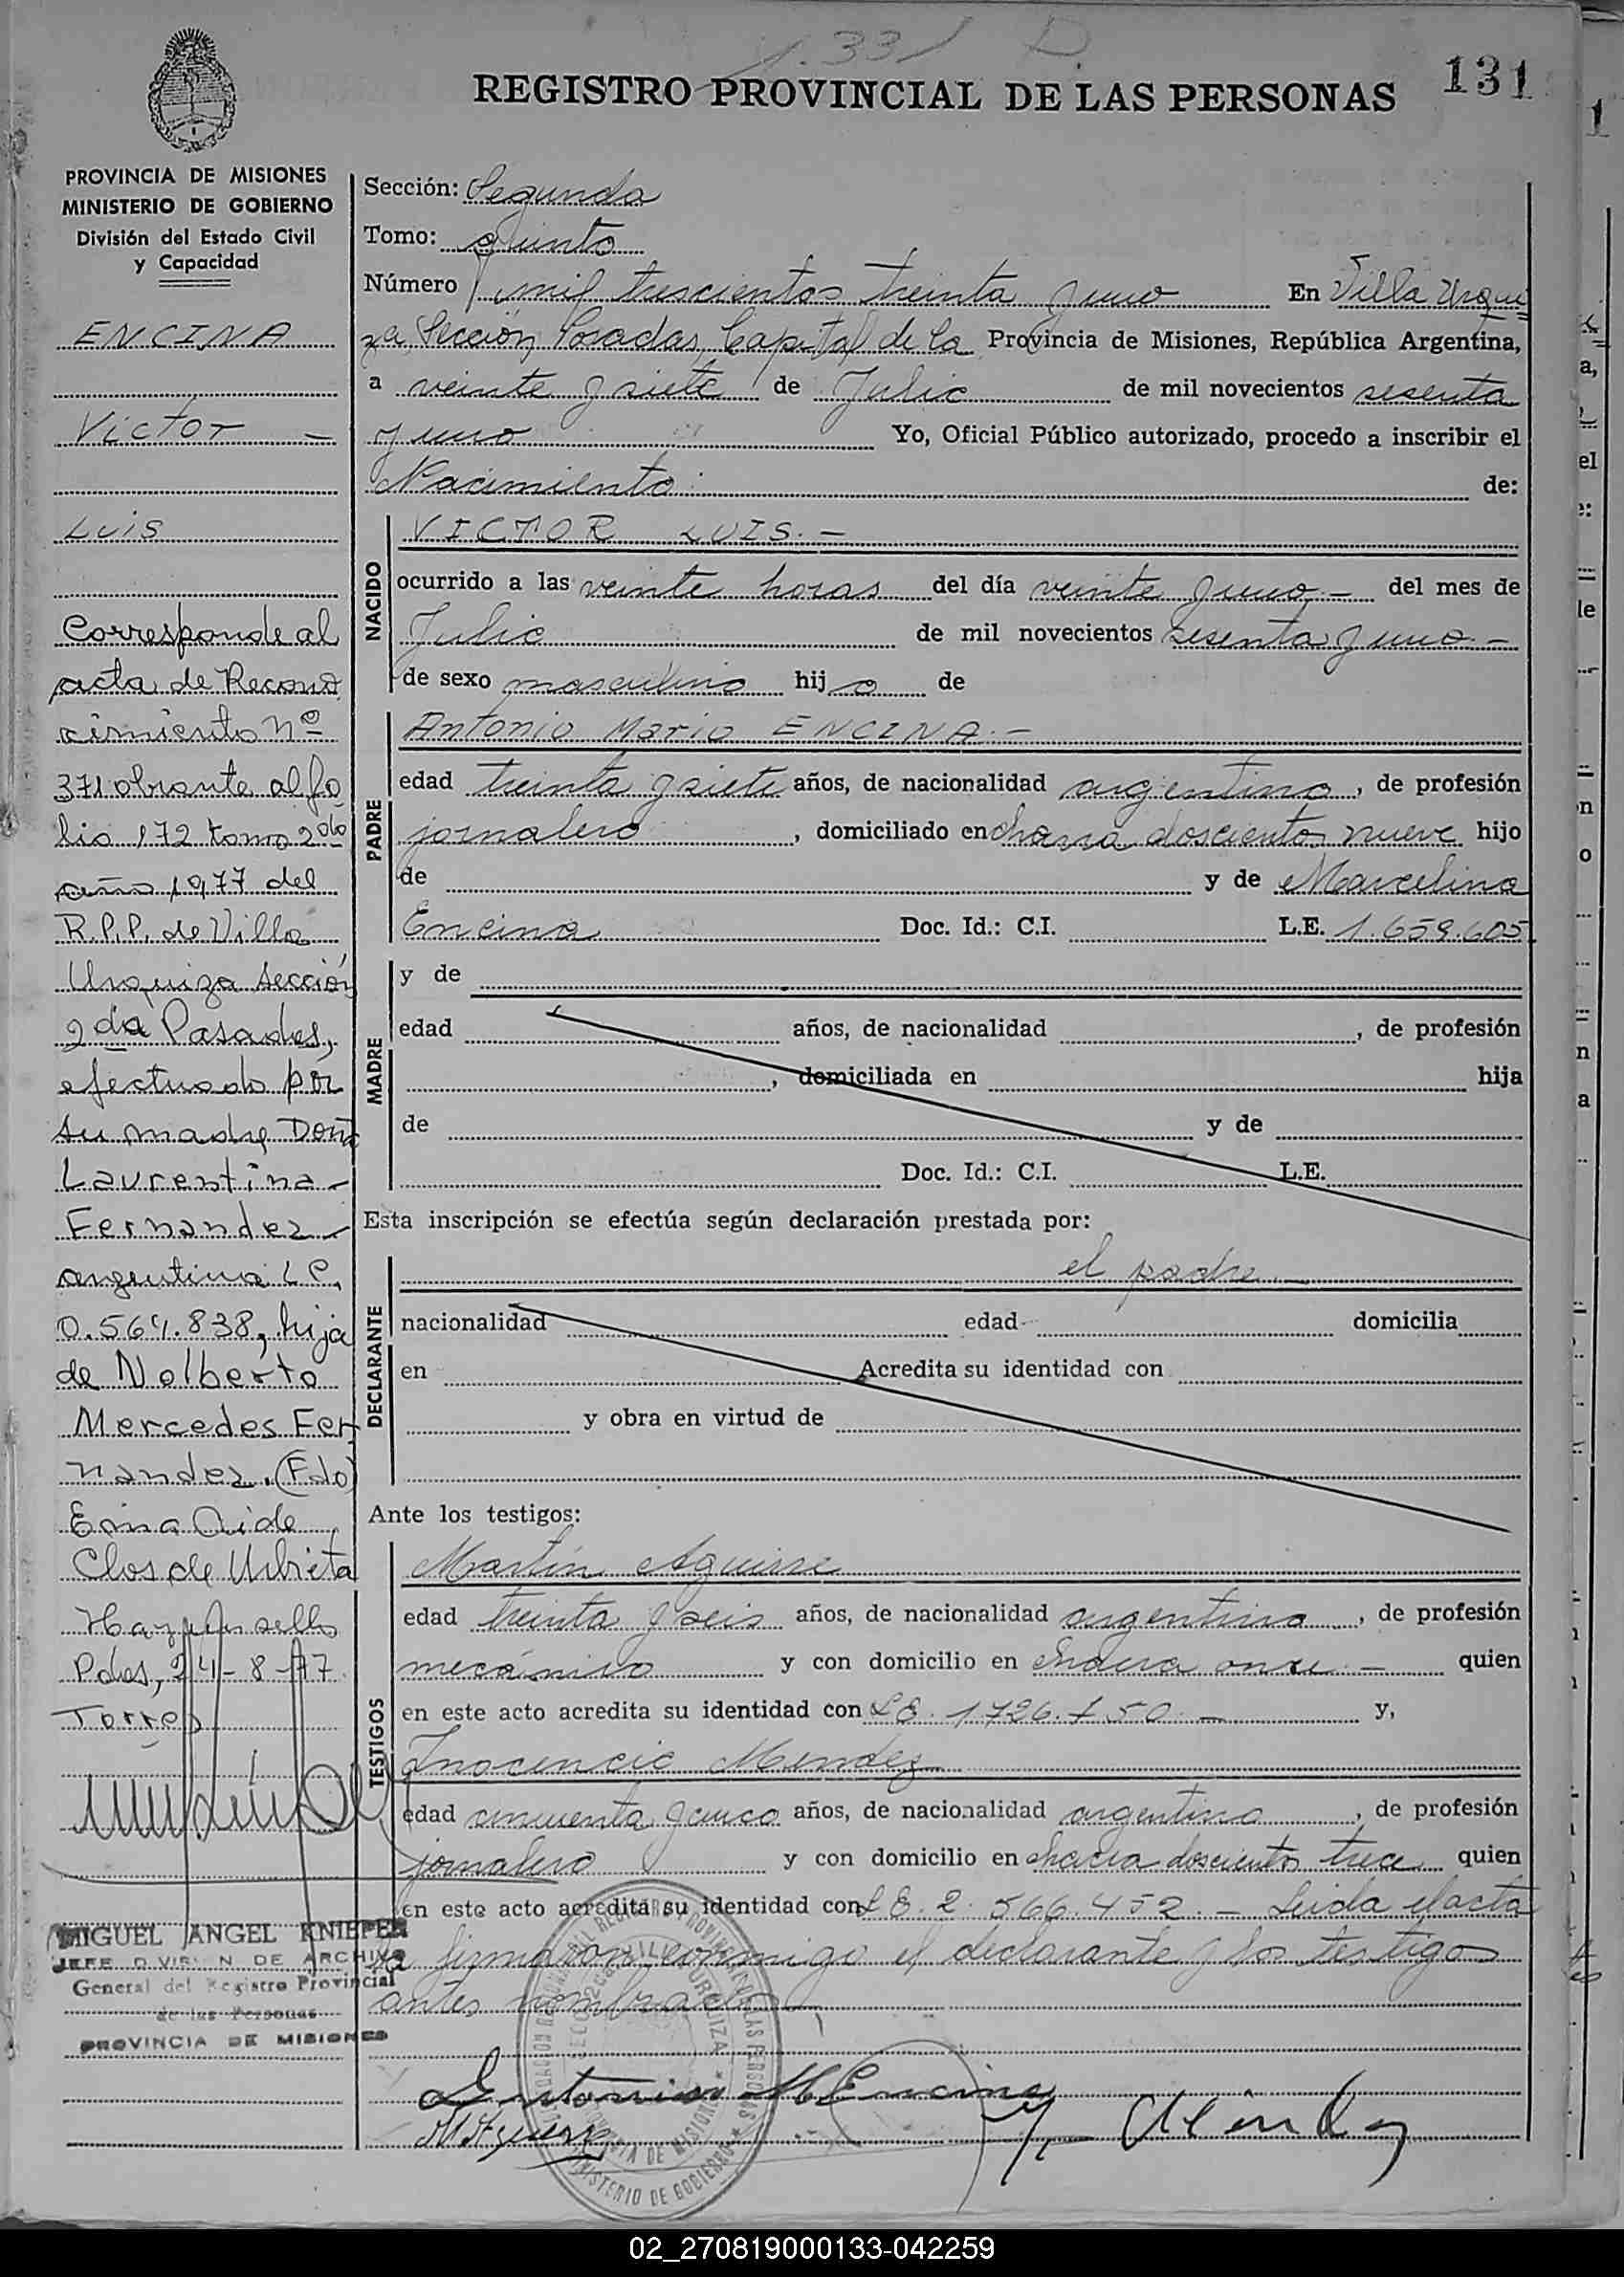 1.331 D.
REGISTRO PROVINCIAL DE LAS PERSONAS 131
PROVINCIA DE MISIONES
MINISTERIO DE GOBIERNO
División del Estado Civil
y Capacidad
ENCINA
Victor —
Luis
Corresponde al
acta de Recono
cimiento Nº
371 obrante al fo
lio 172 tomo 2do
año 1977 del
R.P.P. de Villa
Urquiza sección
2da Posadas,
efectuado por
su madre Doña
Laurentina
Fernandez
argentina L.C.
0.564.838, hija
de Nolberto
Mercedes Fer
nandez. (Fdo)
Ema Aide
Clos de Urbieta
Hay un sello
Pdas, 24-8-77.
Torres
MIGUEL ANGEL KNIEPER
JEFE DIVISION DE ARCHIVO
General del Registro Provincial
de las Personas
PROVINCIA DE MISIONES
Sección: Segunda
Tomo: Quinto
Número mil trescientos treinta y uno En Villa Urqui
za, Sección Posadas, Capital de la Provincia de Misiones, República Argentina,
a veinte y siete de Julio de mil novecientos sesenta
y uno Yo, Oficial Público autorizado, procedo a inscribir el
Nacimiento de:
NACIDO
VICTOR LUIS.—
ocurrido a las veinte horas del día veinte y uno.— del mes de
Julio de mil novecientos sesenta y uno.—
de sexo masculino hijo de
PADRE
Antonio Mario ENCINA.—
edad treinta y siete años, de nacionalidad argentino, de profesión
jornalero, domiciliado en chacra doscientos nueve hijo
de y de Marcelina
Encina Doc. Id.: C.I. L.E. 1.659.605
MADRE
y de
edad años, de nacionalidad , de profesión
, domiciliada en hija
de y de
Doc. Id.: C.I. L.E.
Esta inscripción se efectúa según declaración prestada por:
DECLARANTE
el padre.—
nacionalidad edad domicilia
en Acredita su identidad con
y obra en virtud de
Ante los testigos:
TESTIGOS
Martín Aguirre
edad treinta y seis años, de nacionalidad argentino, de profesión
mecánico y con domicilio en chacra once.— quien
en este acto acredita su identidad con L E. 1.726.750.— y,
Inocencio Mendez
edad cincuenta y cinco años, de nacionalidad argentino, de profesión
jornalero y con domicilio en chacra doscientos trece quien
en este acto acredita su identidad con L E. 2.566.452.— Leida el acta
la firmaron conmigo el declarante y los testigos
antes nombrados
Antonio M Encina
M Aguirre
Y. Mendez
02_270819000133-042259